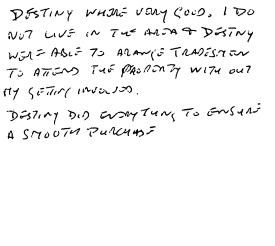 DESTINY WHERE VERY GOOD. I DO
NOT LIVE IN THE AREA & DESTINY
WERE ABLE TO ARANGE TRADESMEN
TO ATTEND THE PROPERTY WITH OUT
MY GETTING INVOLVED.
DESTINY DID EVERYTHING TO ENSURE
A SMOOTH PURCHASE